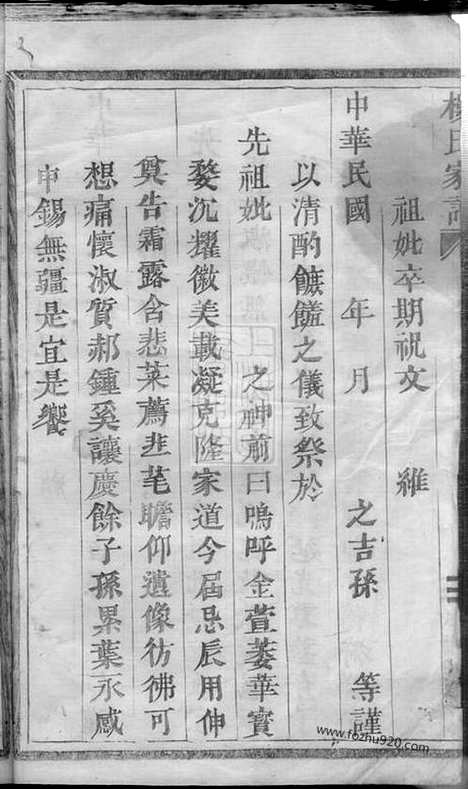 楊氏家記
祖妣卒期祝文 維
中華民國 年 月 之吉孫 等謹
以清酌饌饈之儀致祭於
先祖妣 之神前曰嗚呼金萱萎華寳
婺沉耀徽美載凝克隆家道今屆忌辰用伸
奠告霜露含悲菜薦韭芼瞻仰遺像彷彿可
想痛懷淑質郝鍾奚讓慶餘子孫累葉永感
申錫無疆是宜是饗
www.fozhu920.com